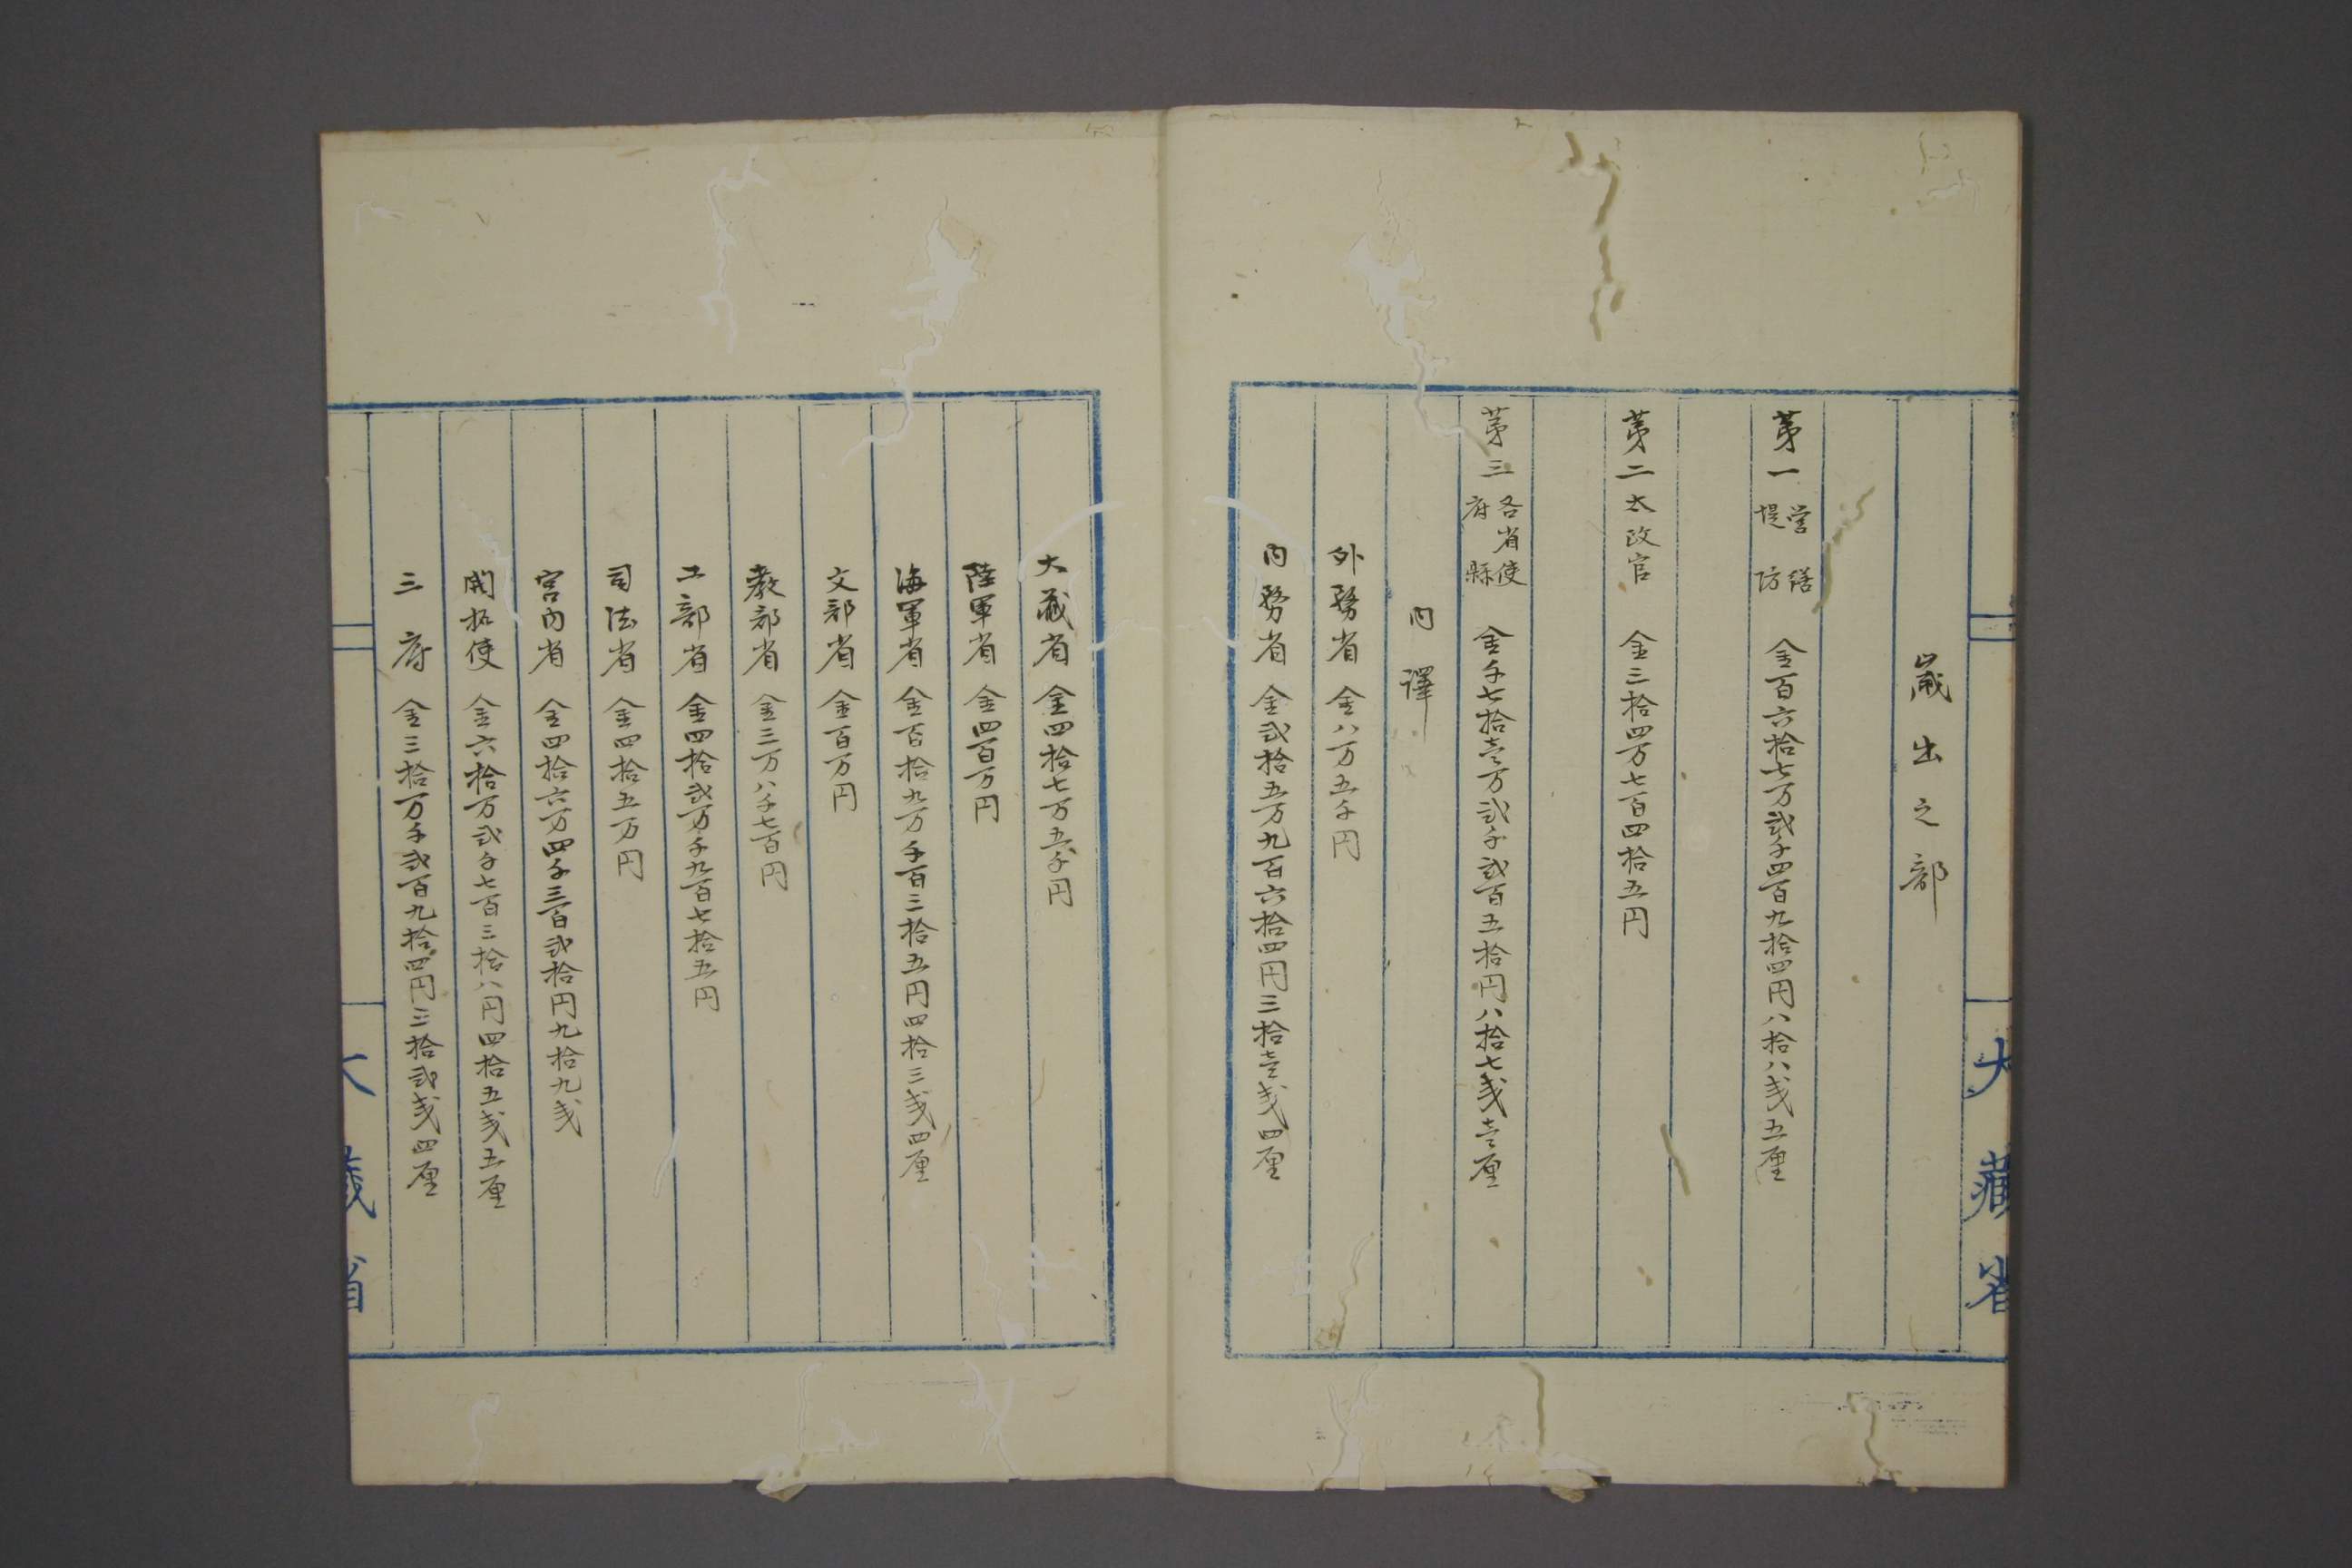 歳出之部
第一 営繕 堤防 金百六拾七万弐千四百九拾四円八拾八銭五厘
第二 太政官 金三拾四万七百四拾五円
第三 各省使 府縣 金千七拾壱万弐千弐百五拾円八拾七銭壱厘
内譯
外務省 金八万五千円
内務省 金弐拾五万九百六拾四円三拾壱銭四厘
大藏省
大蔵省 金四拾七万五千円
陸軍省 金四百万円
海軍省 金百拾九万千百三拾五円四拾三銭四厘
文部省 金百万円
教部省 金三万八千七百円
工部省 金四拾弐万千九百七拾五円
司法省 金四拾五万円
宮内省 金四拾六万四千三百弐拾円九拾九銭
開拓使 金六拾万弐千七百三拾八円四拾五銭五厘
三府 金三拾万千弐百九拾四円三拾弐銭四厘
大藏省